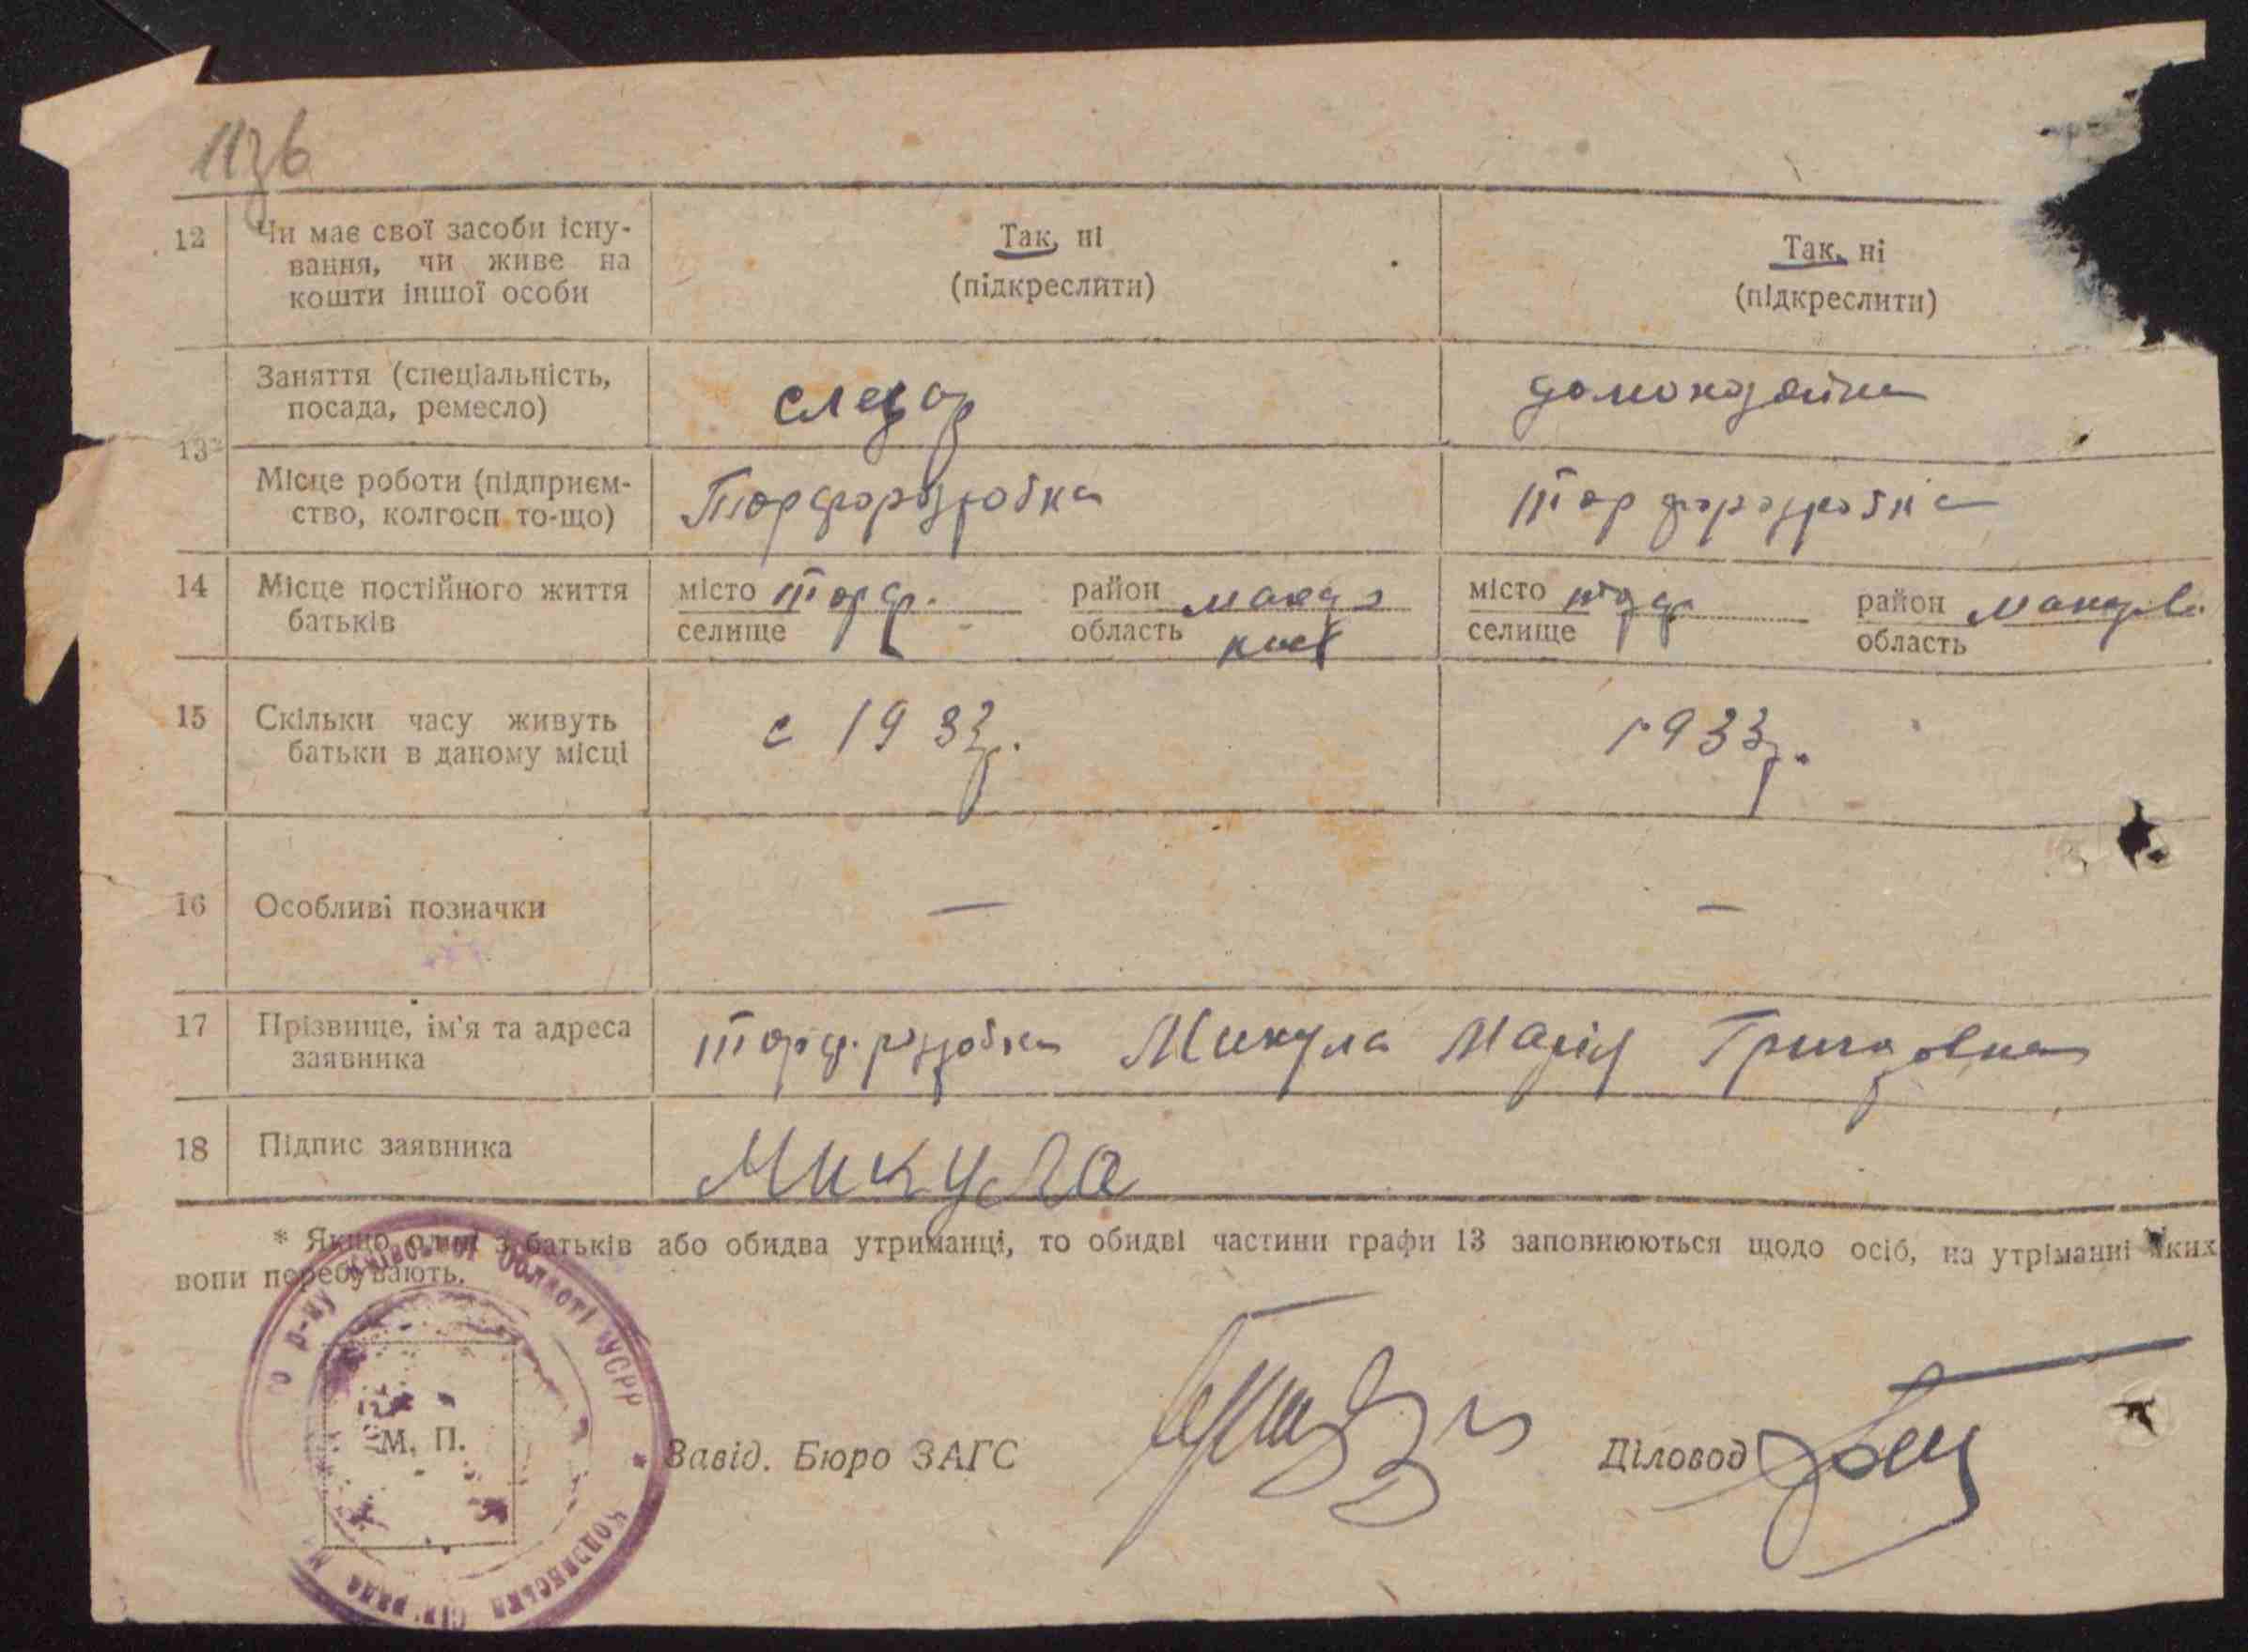 12 Чи має свої засоби існу-
вання, чи живе на
кошти іншої особи
Так, ні
(підкреслити)
Так, ні
(підкреслити)
13
Заняття (спеціальність,
посада, ремесло)
слесар
домохозяйка
Місце роботи (підприєм-
ство, колгосп то-що)
Торфорозробка
Торфорозробка
14 Місце постійного життя
батьків
місто торф. район
селище область
місто торф район
селище область
15 Скільки часу живуть
батьки в даному місці
с 1933р.
1933р.
16 Особливі позначки
—
—
17 Прізвище, ім'я та адреса
заявника
торф.розробка Микула Марія Григоровна
18 Підпис заявника
Микула
* Якщо один з батьків або обидва утриманці, то обидві частини графи 13 заповнюються щодо осіб, на утріманні яких
вони перебувають.
го р-ну Київської області УСРР *
сільрада
М. П.
Завід. Бюро ЗАГС
Діловод